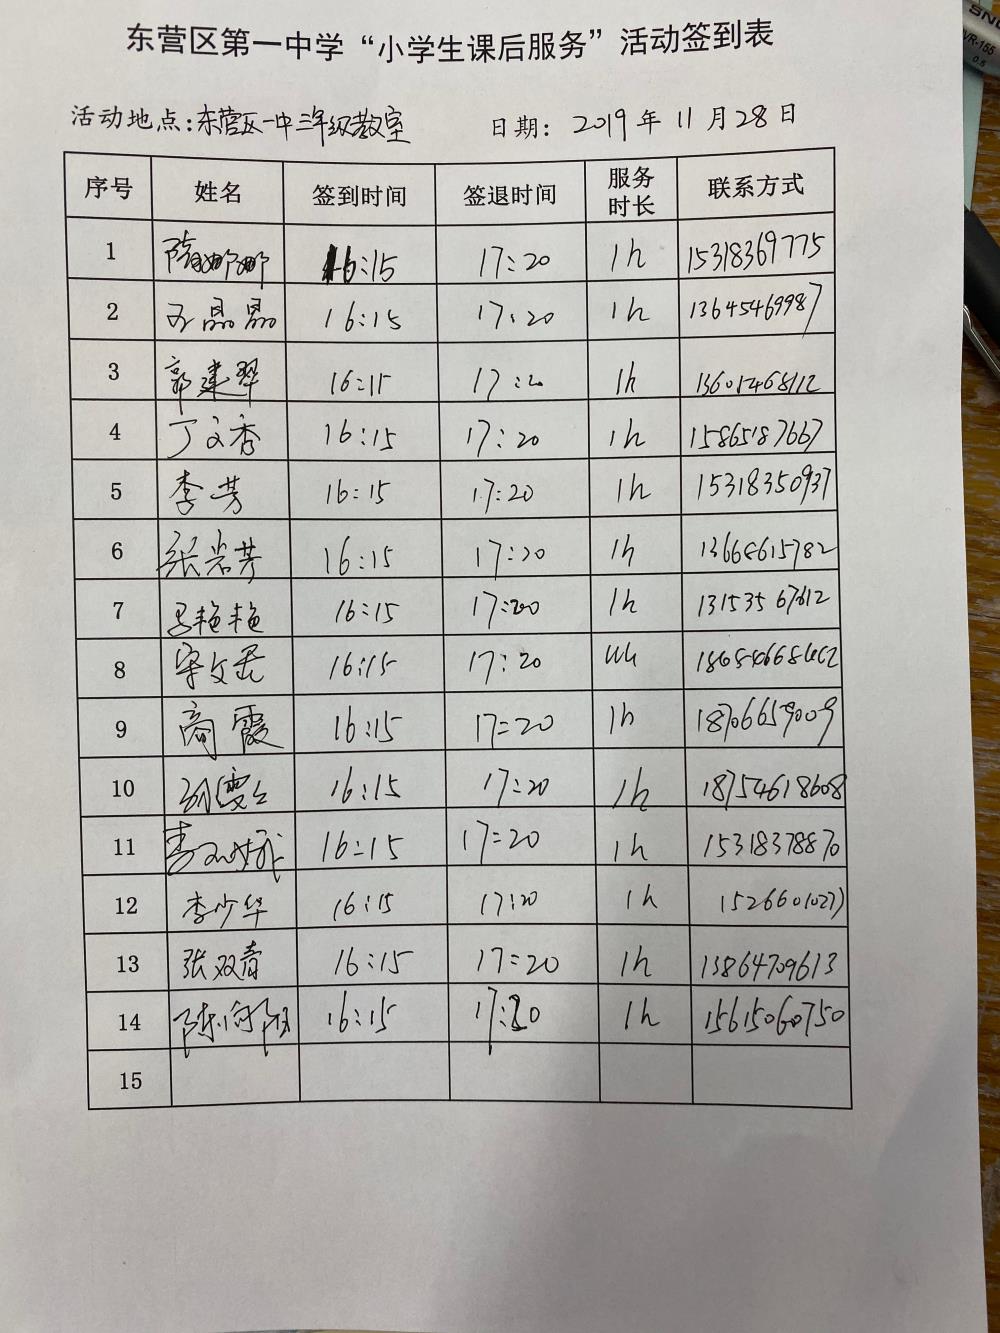 东营区第一中学“小学生课后服务”活动签到表
活动地点:东营区一中三年级教室 日期: 2019年11月28日
序号 姓名 签到时间 签退时间 服务时长 联系方式
1 隋娜娜 16:15 17:20 1h 15318369775
2 王晶晶 16:15 17:20 1h 13645469987
3 郭建翠 16:15 17:20 1h
4 丁文秀 16:15 17:20 1h 15865187667
5 李芳 16:15 17:20 1h 15318350937
6 张岩芳 16:15 17:20 1h 13668615782
7 吕艳艳 16:15 17:20 1h 13153567612
8 宋文君 16:15 17:20
9 商霞 16:15 17:20 1h 18706659009
10 16:15 17:20 1h 18754618608
11 16:15 17:20 1h 15318378870
12 李少华 16:15 17:20 1h
13 张双青 16:15 17:20 1h 13864709613
14 陈向阳 16:15 17:20 1h 15615060750
15
SN
VR-155
0.5